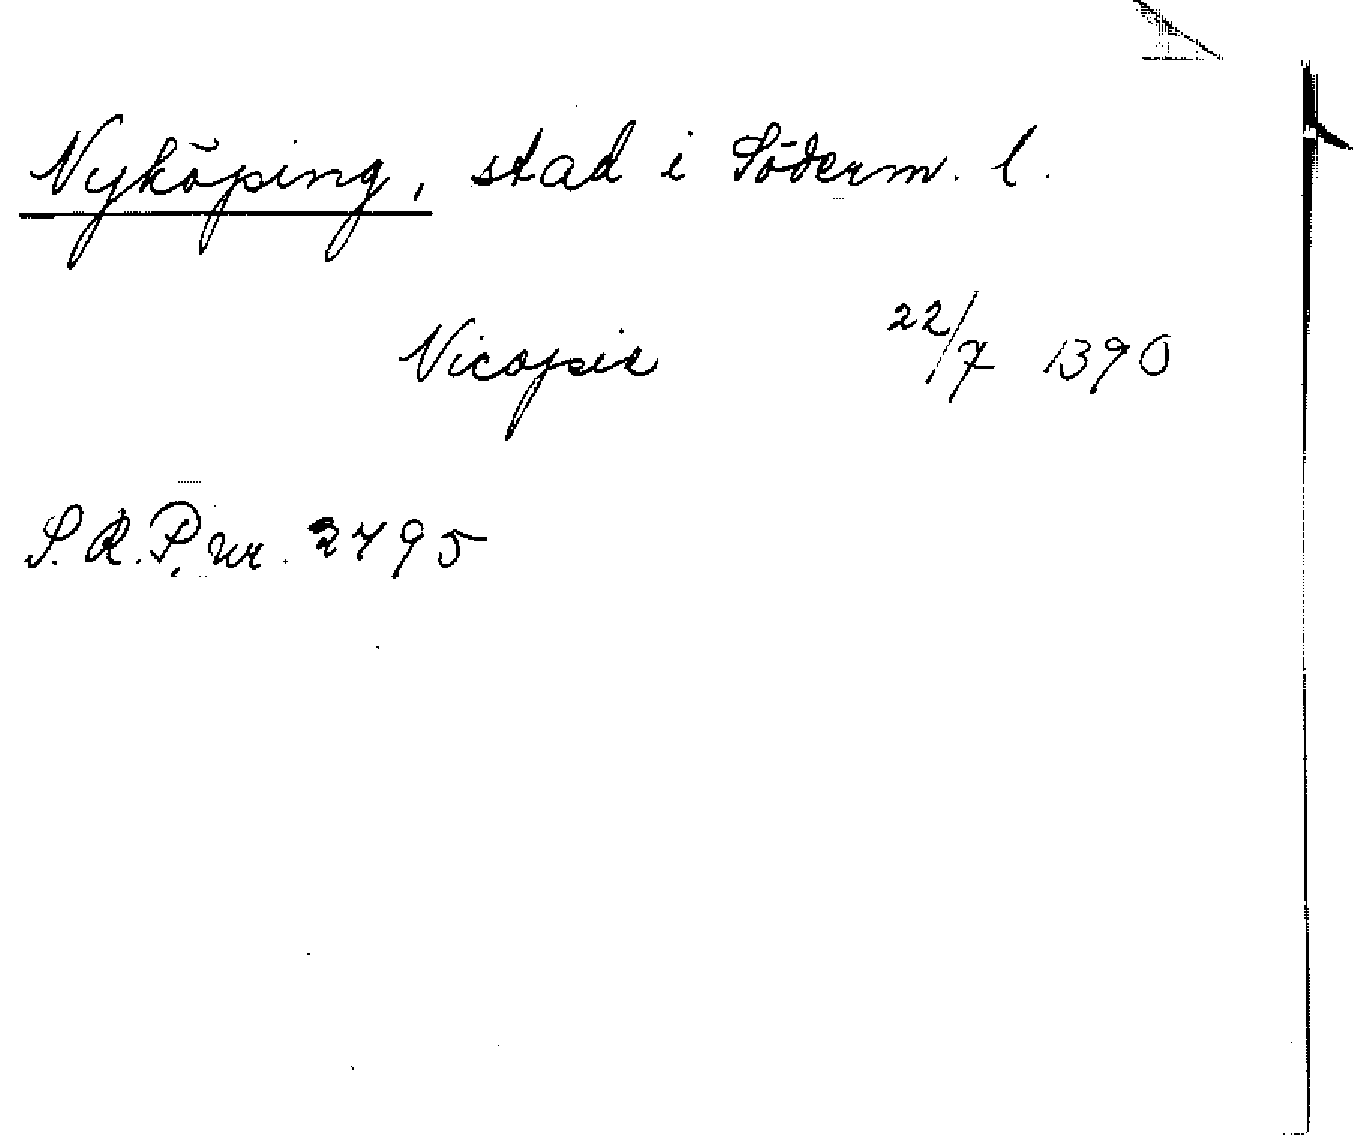 Nyköping, stad i Söderm. l.
Nicopie 22/7 1390
S. R. P. nr. 2495